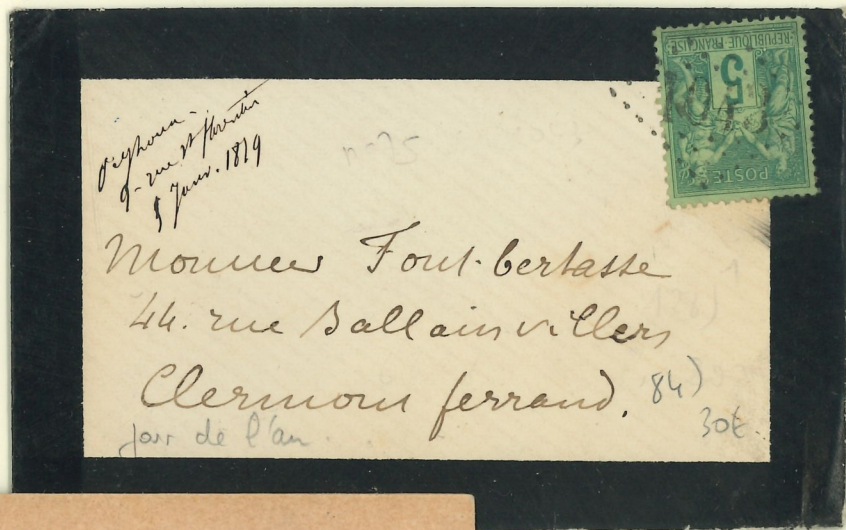 9 - rue St florentin
5 Janv. 1879
n-25
REPUBLIQUE FRANÇAISE
5
POSTE
Monsieur Font-bertasse
44. rue Ballainvillers
Clermont ferrand.
84)
30€
jour de l'an